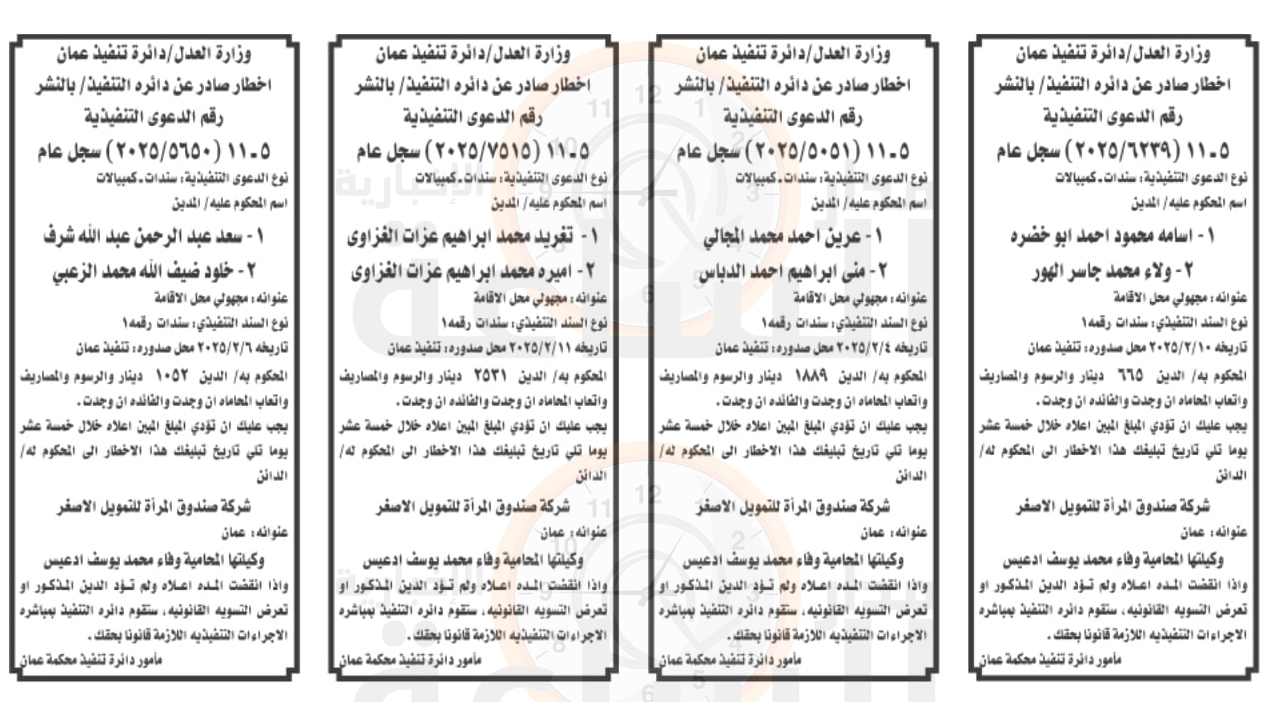 وزارة العدل/دائرة تنفيذ عمان
اخطار صادر عن دائره التنفيذ/ بالنشر
رقم الدعوى التنفيذية
٥-١١ (٢٠٢٥/٦٢٣٩) سجل عام
نوع الدعوى التنفيذية: سندات-كمبيالات
اسم المحكوم عليه/ المدين
١- اسامه محمود احمد ابو خضره
٢- ولاء محمد جاسر الهور
عنوانه: مجهولي محل الاقامة
نوع السند التنفيذي: سندات رقمه١
تاريخه ٢٠٢٥/٢/١٠ محل صدوره: تنفيذ عمان
المحكوم به/ الدين ٦٦٥ دينار والرسوم والمصاريف
واتعاب المحاماه ان وجدت والفائده ان وجدت.
يجب عليك ان تؤدي المبلغ المبين اعلاه خلال خمسة عشر
يوما تلي تاريخ تبليغك هذا الاخطار الى المحكوم له/
الدائن
شركة صندوق المرأة للتمويل الاصغر
عنوانه: عمان
وكيلتها المحامية وفاء محمد يوسف ادعيس
واذا انقضت المده اعلاه ولم تؤد الدين المذكور او
تعرض التسويه القانونيه، ستقوم دائره التنفيذ بمباشره
الاجراءات التنفيذيه اللازمة قانونا بحقك.
مأمور دائرة تنفيذ محكمة عمان
وزارة العدل/دائرة تنفيذ عمان
اخطار صادر عن دائره التنفيذ/ بالنشر
رقم الدعوى التنفيذية
٥-١١ (٢٠٢٥/٥٠٥١) سجل عام
نوع الدعوى التنفيذية: سندات-كمبيالات
اسم المحكوم عليه/ المدين
١- عرين احمد محمد المجالي
٢- منى ابراهيم احمد الدباس
عنوانه: مجهولي محل الاقامة
نوع السند التنفيذي: سندات رقمه١
تاريخه ٢٠٢٥/٢/٤ محل صدوره: تنفيذ عمان
المحكوم به/ الدين ١٨٨٩ دينار والرسوم والمصاريف
واتعاب المحاماه ان وجدت والفائده ان وجدت.
يجب عليك ان تؤدي المبلغ المبين اعلاه خلال خمسة عشر
يوما تلي تاريخ تبليغك هذا الاخطار الى المحكوم له/
الدائن
شركة صندوق المرأة للتمويل الاصغر
عنوانه: عمان
وكيلتها المحامية وفاء محمد يوسف ادعيس
واذا انقضت المده اعلاه ولم تؤد الدين المذكور او
تعرض التسويه القانونيه، ستقوم دائره التنفيذ بمباشره
الاجراءات التنفيذيه اللازمة قانونا بحقك.
مأمور دائرة تنفيذ محكمة عمان
وزارة العدل/دائرة تنفيذ عمان
اخطار صادر عن دائره التنفيذ/ بالنشر
رقم الدعوى التنفيذية
٥-١١ (٢٠٢٥/٧٥١٥) سجل عام
نوع الدعوى التنفيذية: سندات-كمبيالات
اسم المحكوم عليه/ المدين
١- تغريد محمد ابراهيم عزات الغزاوى
٢- اميره محمد ابراهيم عزات الغزاوى
عنوانه: مجهولي محل الاقامة
نوع السند التنفيذي: سندات رقمه١
تاريخه ٢٠٢٥/٢/١١ محل صدوره: تنفيذ عمان
المحكوم به/ الدين ٢٥٣١ دينار والرسوم والمصاريف
واتعاب المحاماه ان وجدت والفائده ان وجدت.
يجب عليك ان تؤدي المبلغ المبين اعلاه خلال خمسة عشر
يوما تلي تاريخ تبليغك هذا الاخطار الى المحكوم له/
الدائن
شركة صندوق المرأة للتمويل الاصغر
عنوانه: عمان
وكيلتها المحامية وفاء محمد يوسف ادعيس
واذا انقضت المده اعلاه ولم تؤد الدين المذكور او
تعرض التسويه القانونيه، ستقوم دائره التنفيذ بمباشره
الاجراءات التنفيذيه اللازمة قانونا بحقك.
مأمور دائرة تنفيذ محكمة عمان
وزارة العدل/دائرة تنفيذ عمان
اخطار صادر عن دائره التنفيذ/ بالنشر
رقم الدعوى التنفيذية
٥-١١ (٢٠٢٥/٥٦٥٠) سجل عام
نوع الدعوى التنفيذية: سندات-كمبيالات
اسم المحكوم عليه/ المدين
١- سعد عبد الرحمن عبد الله شرف
٢- خلود ضيف الله محمد الزعبي
عنوانه: مجهولي محل الاقامة
نوع السند التنفيذي: سندات رقمه١
تاريخه ٢٠٢٥/٢/٦ محل صدوره: تنفيذ عمان
المحكوم به/ الدين ١٠٥٢ دينار والرسوم والمصاريف
واتعاب المحاماه ان وجدت والفائده ان وجدت.
يجب عليك ان تؤدي المبلغ المبين اعلاه خلال خمسة عشر
يوما تلي تاريخ تبليغك هذا الاخطار الى المحكوم له/
الدائن
شركة صندوق المرأة للتمويل الاصغر
عنوانه: عمان
وكيلتها المحامية وفاء محمد يوسف ادعيس
واذا انقضت المده اعلاه ولم تؤد الدين المذكور او
تعرض التسويه القانونيه، ستقوم دائره التنفيذ بمباشره
الاجراءات التنفيذيه اللازمة قانونا بحقك.
مأمور دائرة تنفيذ محكمة عمان